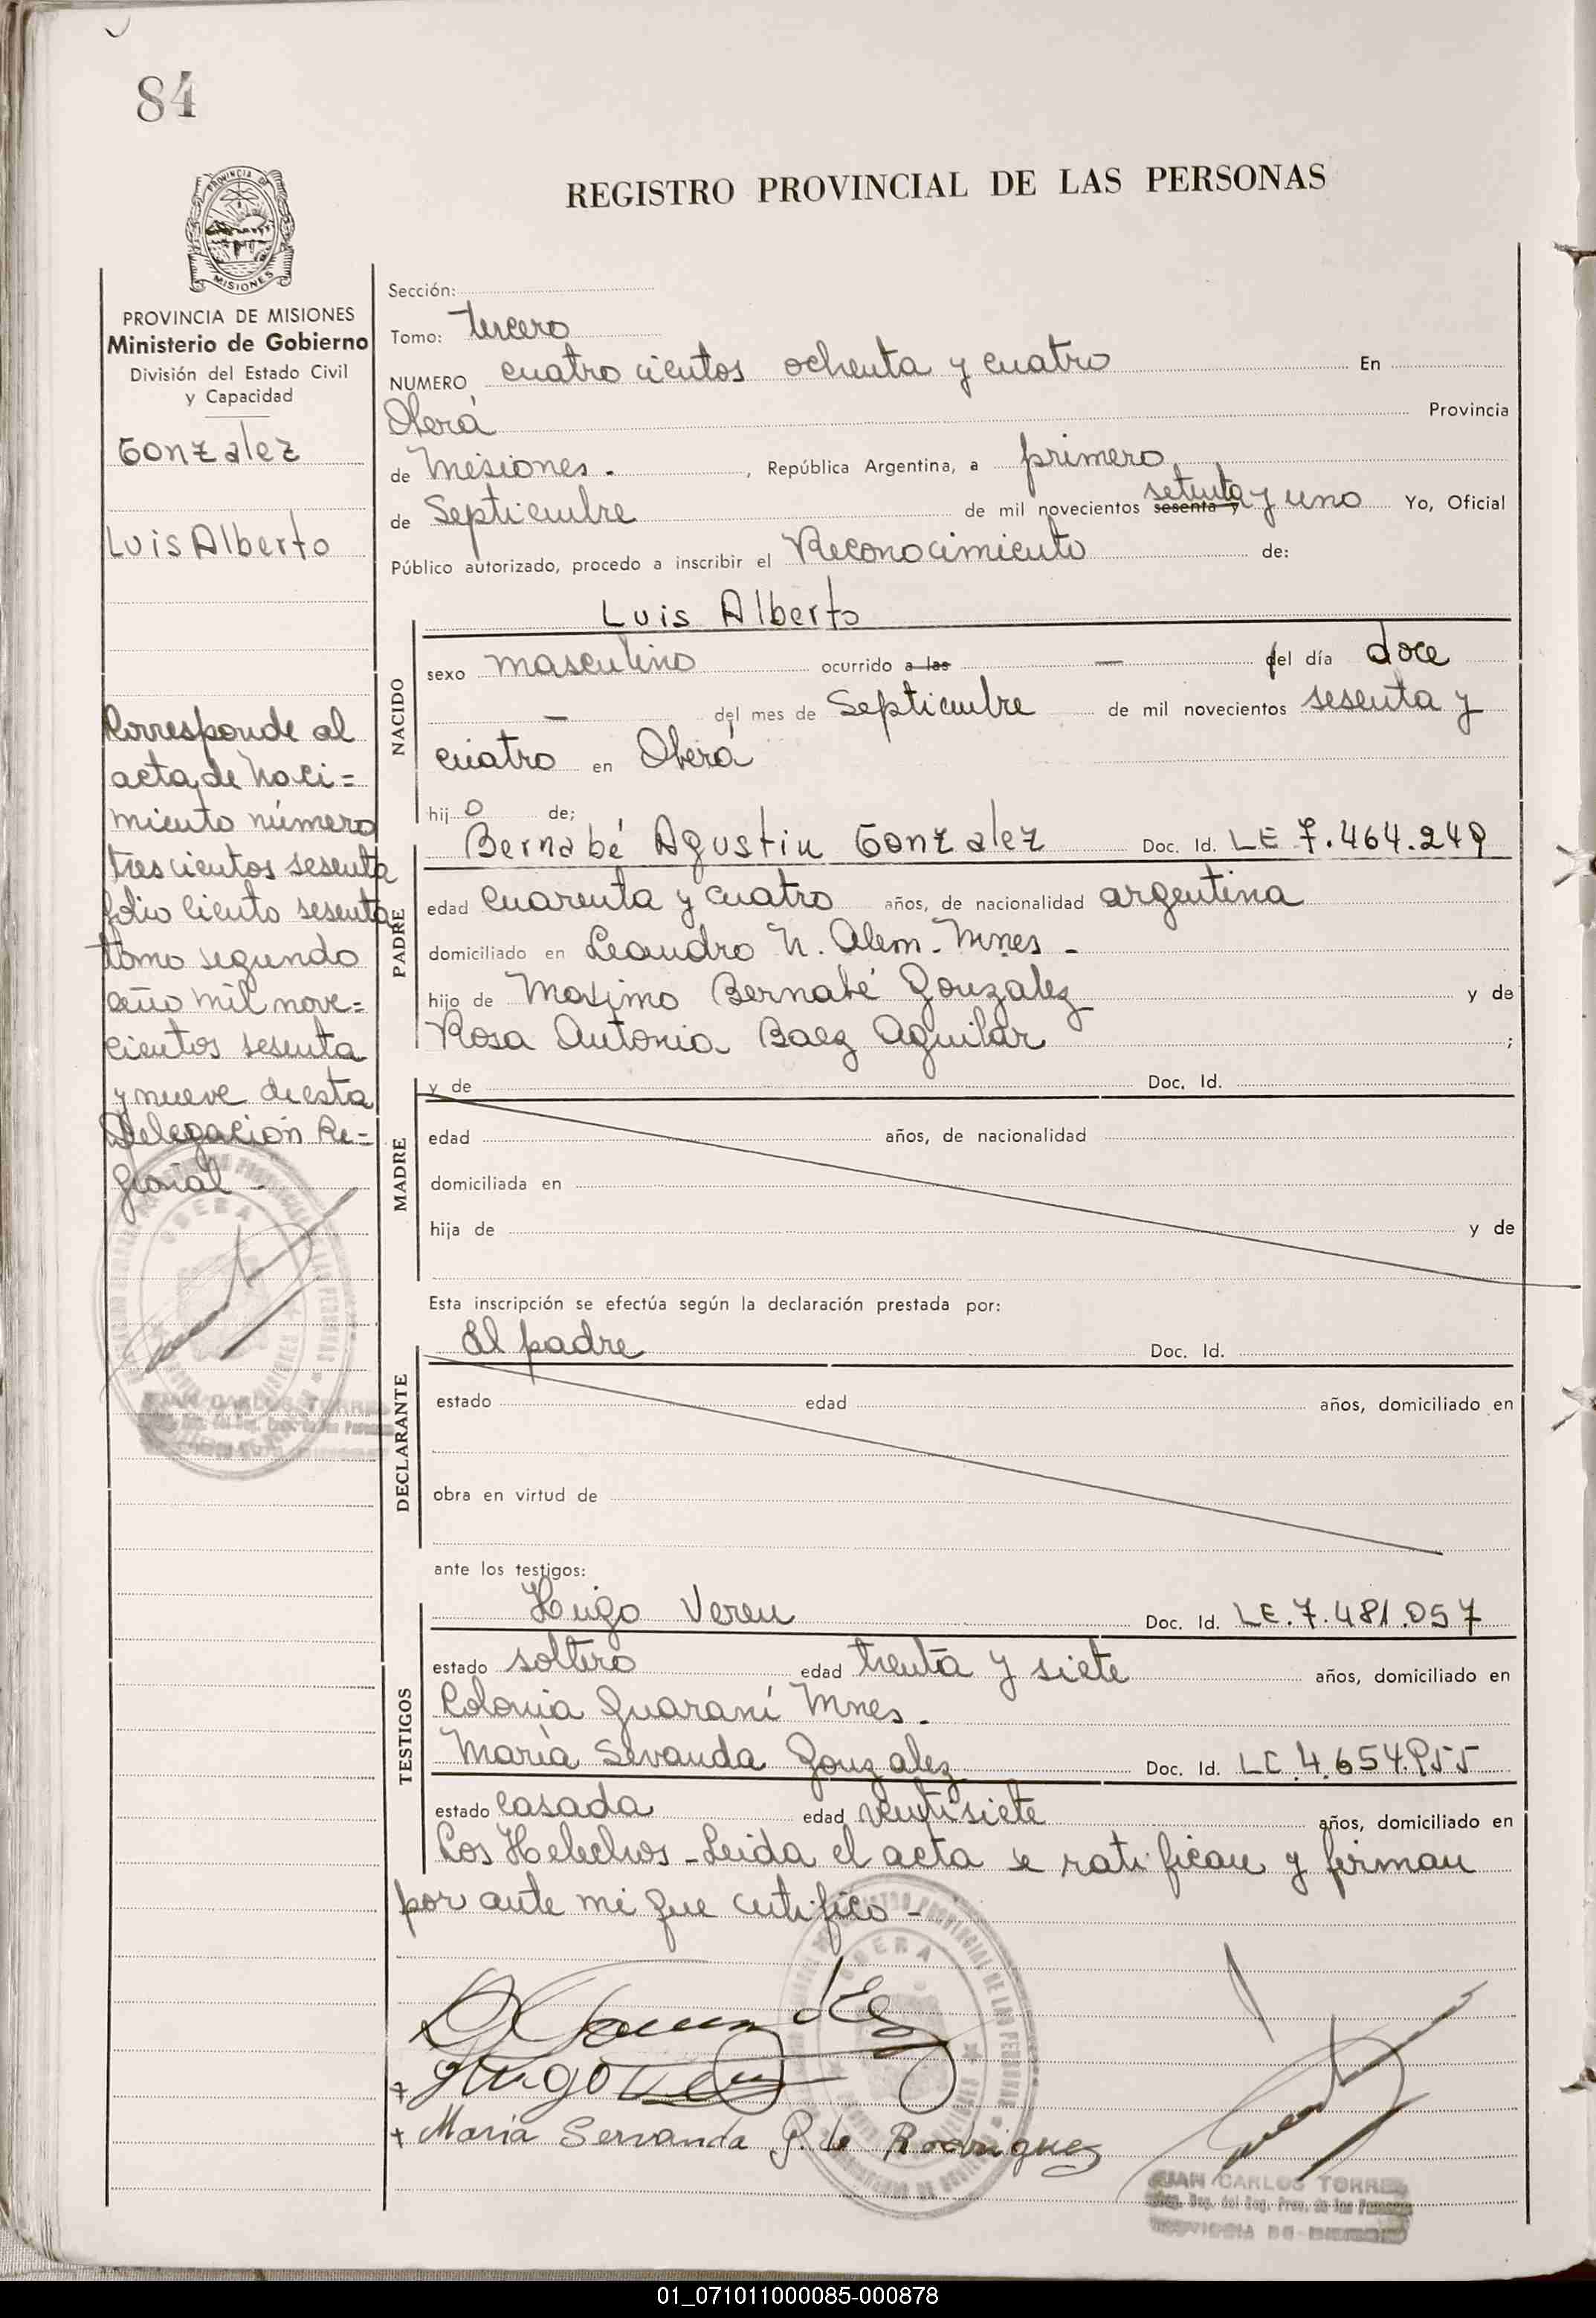 84
REGISTRO PROVINCIAL DE LAS PERSONAS
PROVINCIA DE
MISIONES
PROVINCIA DE MISIONES
Ministerio de Gobierno
División del Estado Civil
y Capacidad
Gonzalez
Luis Alberto
Corresponde al
acta de naci=
miento número
trescientos sesenta
folio ciento sesenta
tomo segundo
año mil nove=
cientos sesenta
y nueve de esta
Delegación Re=
gional -
OBERA
JUAN CARLOS TORRES
Sección:
Tomo: tercero
NUMERO cuatrocientos ochenta y cuatro En
Oberá Provincia
de Misiones. , República Argentina, a primero
de Septiembre de mil novecientos sesenta y setenta y uno Yo, Oficial
Público autorizado, procedo a inscribir el Reconocimiento de:
Luis Alberto
NACIDO
sexo masculino ocurrido a las — del día doce
— del mes de Septiembre de mil novecientos sesenta y
cuatro en Oberá
hijo de;
PADRE
Bernabé Agustin Gonzalez Doc. Id. LE 7.464.249
edad cuarenta y cuatro años, de nacionalidad argentina
domiciliado en Leandro N. Alem - Mnes -
hijo de Maximo Bernabé Gonzalez y de
Rosa Antonia Baez Aguilar ;
MADRE
y de Doc. Id.
edad años, de nacionalidad
domiciliada en
hija de y de
Esta inscripción se efectúa según la declaración prestada por:
DECLARANTE
El padre Doc. Id.
estado edad años, domiciliado en
obra en virtud de
ante los testigos:
TESTIGOS
Hugo Vereu Doc. Id. LE.7.481.057
estado soltero edad treinta y siete años, domiciliado en
Colonia Guaraní Mnes -
María Sevanda Gonzalez Doc. Id. LC.4.654.955
estado casada edad ventisiete años, domiciliado en
Los Helechos - Leida el acta se ratifican y firman
por ante mi que certifico -
OBERA
Hugo
+ María Servanda G. de Rodriguez
JUAN CARLOS TORRES
01_071011000085-000878